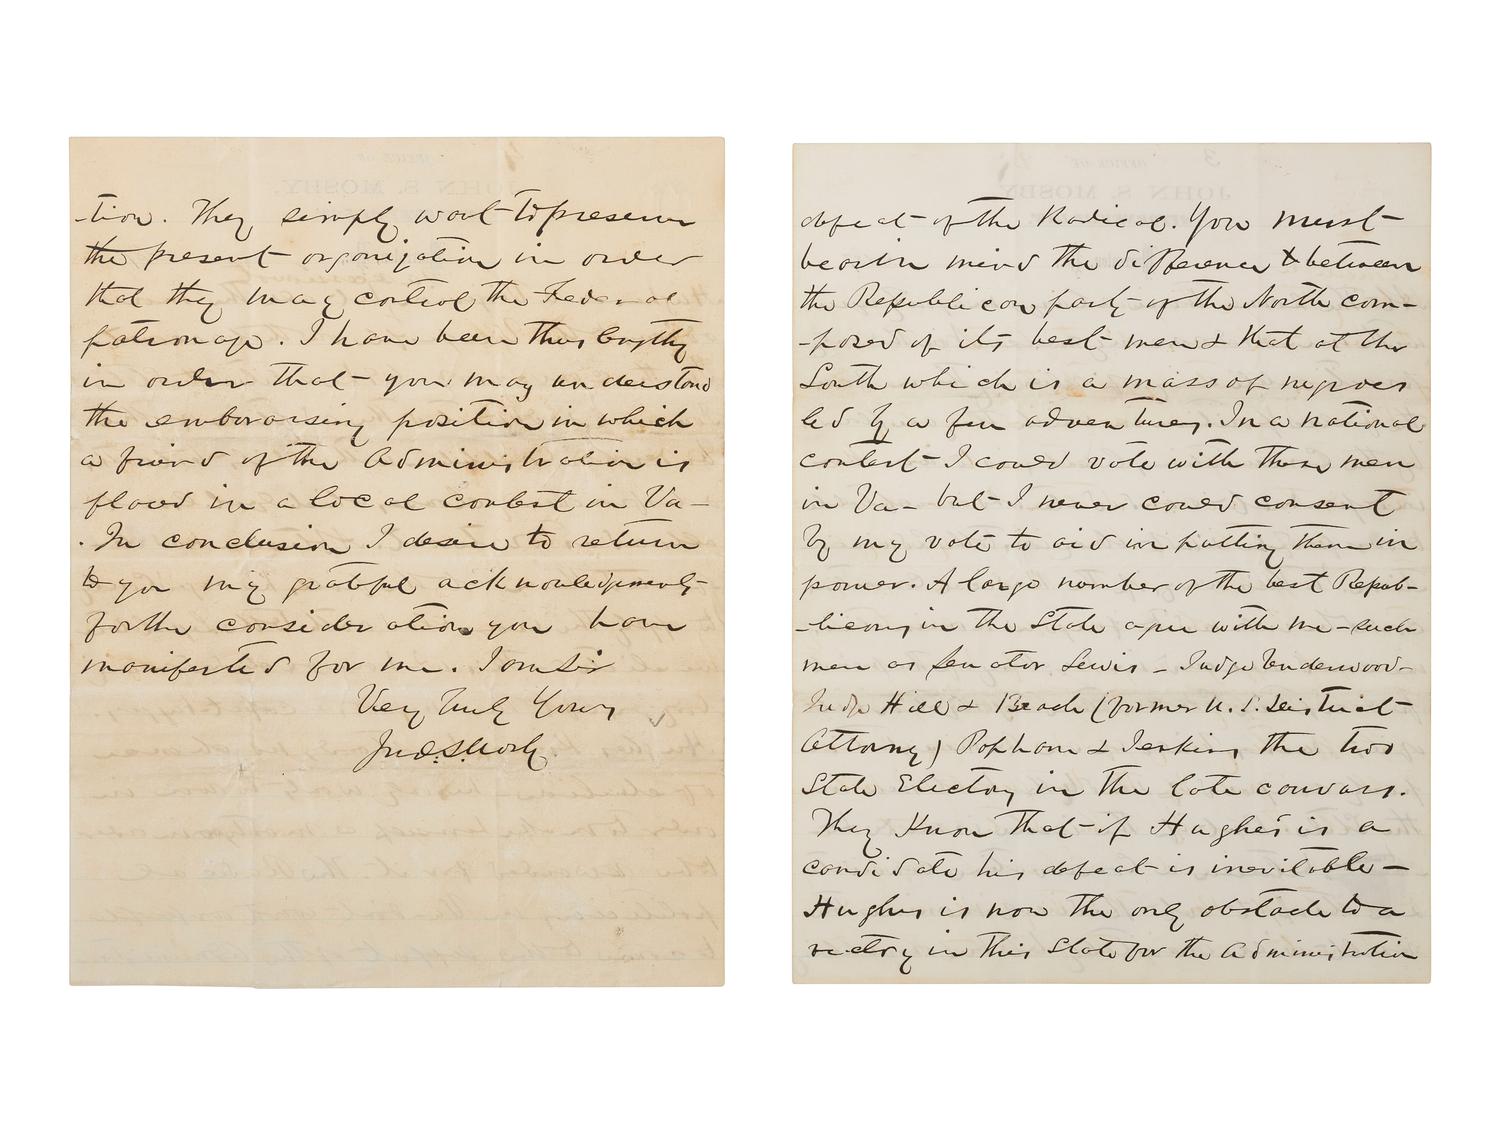 -tion. They simply want to preserve
the present organization in order
that they may control the Federal
patronage. I have been thus lengthy
in order that you may understand
the embarassing position in which
a friend of the Administration is
placed in a local contest in Va-
. In conclusion I desire to return
to you my grateful acknowledgments
for the consideration you have
manifested for me. I am Sir
Very Truly Yours
Jno. S. Mosby.
OFFICE OF
JOHN S. MOSBY.
defeat of the Radical. You must
bear in mind the difference & between
the Republican party of the North com-
-posed of its best men & that at the
South which is a mass of negroes
led by a few adventurers. In a national
contest I could vote with these men
in Va- but I never could consent
by my vote to aid in putting them in
power. A large number of the best Repub-
-licans in the State agree with me - such
men as Senator Lewis - Judge Underwood -
Judge Hill & Beach (former U.S. District
Attorney) Popham & Jenkins the two
State Electors in the late canvass.
They Know that if Hughes is a
candidate his defeat is inevitable -
Hughes is now the only obstacle to a
victory in this State for the Administration
3
OFFICE OF
JOHN S. MOSBY